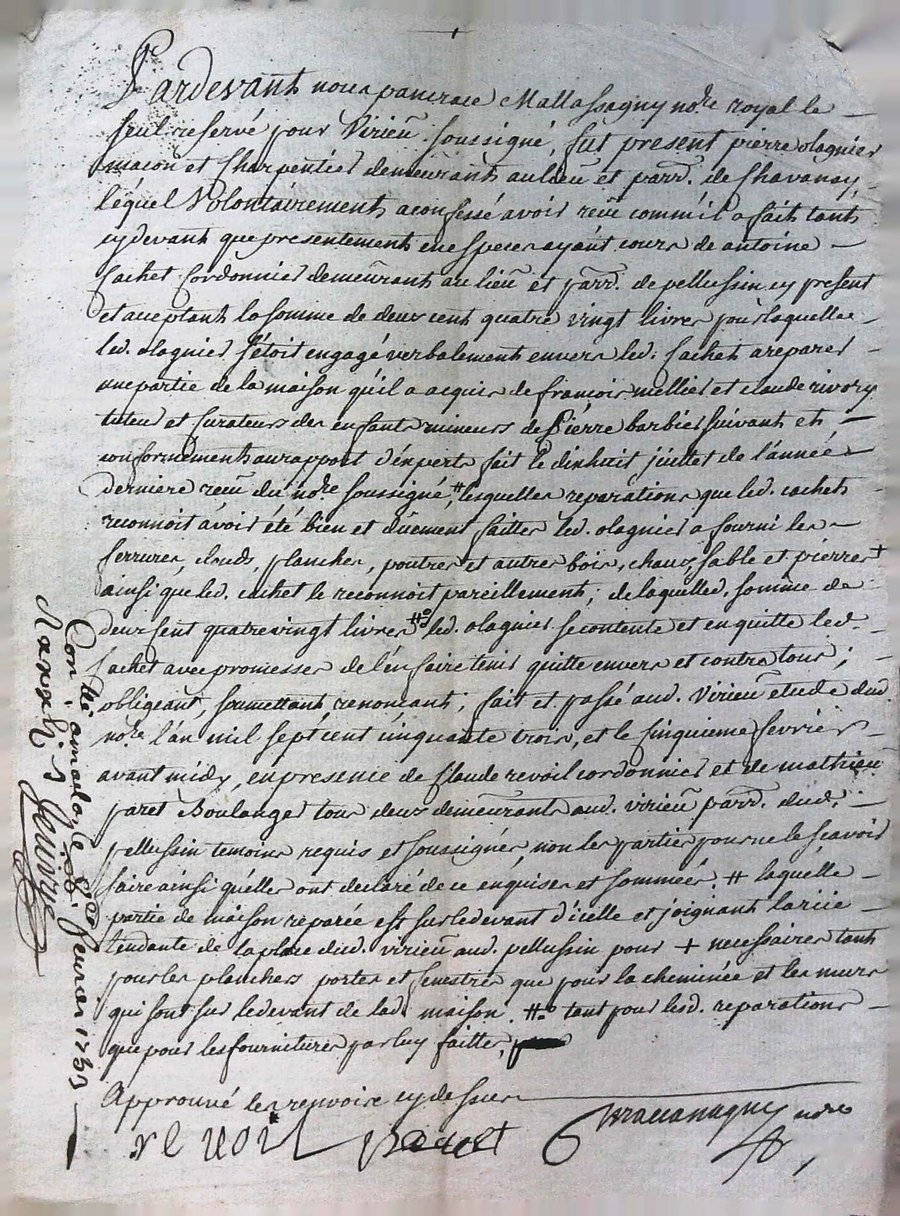 Pardevant nous pancrace Mallassagny nore royal le
seul reservé pour Virieu soussigné, fut present pierre olagnier
macon et Charpentier demeurant au lieu et parr. de Chavanay,
lequel Volontairement a confessé avoir reçu comm'il a fait tant
cy devant que presentement en especes ayant cours de antoine
Cachet Cordonnier demeurant au lieu et parr. de pellussin cy present
et acceptant la somme de deux cent quatre vingt livres pour laquelle
led. olagnier s'étoit engagé verbalement envers led. Cachet a reparer
une partie de la maison qu'il a acquis de françois mellier et claude rivory
tuteur et Curateur des enfants mineurs de Pierre barbier suivant et
conformément au rapport d'experts fait le dixhuit juillet de l'année
derniere reçu du nore soussigné, # lesquelles reparations que led. cachet
reconnoit avoir été bien et duement faittes led. olagnier a fourni les
ferrures, clouds, planches, poutres et autres bois, chaux, sable et pierres +
ainsi que led. cachet le reconnoit pareillement; de laquelled. somme de
deux cent quatrevingt livres #o led. olagnier se contente et en quitte led.
Cachet avec promesses de l'en faire tenir quitte envers et contre tous;
obligeant, soumettant renoncant; fait et passé aud. Virieu etude dud
nore l'an mil sept cent cinquante trois, et le cinquieme fevrier
avant midy, en presence de Claude revoil cordonnier et de mathieu
paret Boulanger tous deux demeurants aud. virieu parr. dud.
pellussin temoins requis et soussignés, non les parties pour ne le scavoir
faire ainsi qu'elles ont declaré de ce enquises et sommées. # laquelle
partie de maison reparée est sur le devant d'icelle et joignant la rüe
tendante de la place dud. virieu aud. pellussin pour + necessaires tant
pour les planchers portes et fenestres que pour la cheminée et les murs
qui sont sur le devant de lad. maison. #o tant pour lesd. reparations
que pour les fournitures par luy faittes,
Approuvé les renvoirs cy dessus
revoil paret Mallassagny nore
Con.lé a le fevrier 1753